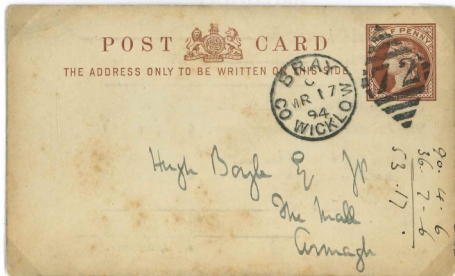 POST CARD
THE ADDRESS ONLY TO BE WRITTEN ON THIS SIDE
HALF PENNY
BRAY
C
MR 17
94
CO WICKLOW
72
Hugh Boyle Esq JP
The Mall
Armagh
90. 4. 6
36. 7 - 6
53. 17.